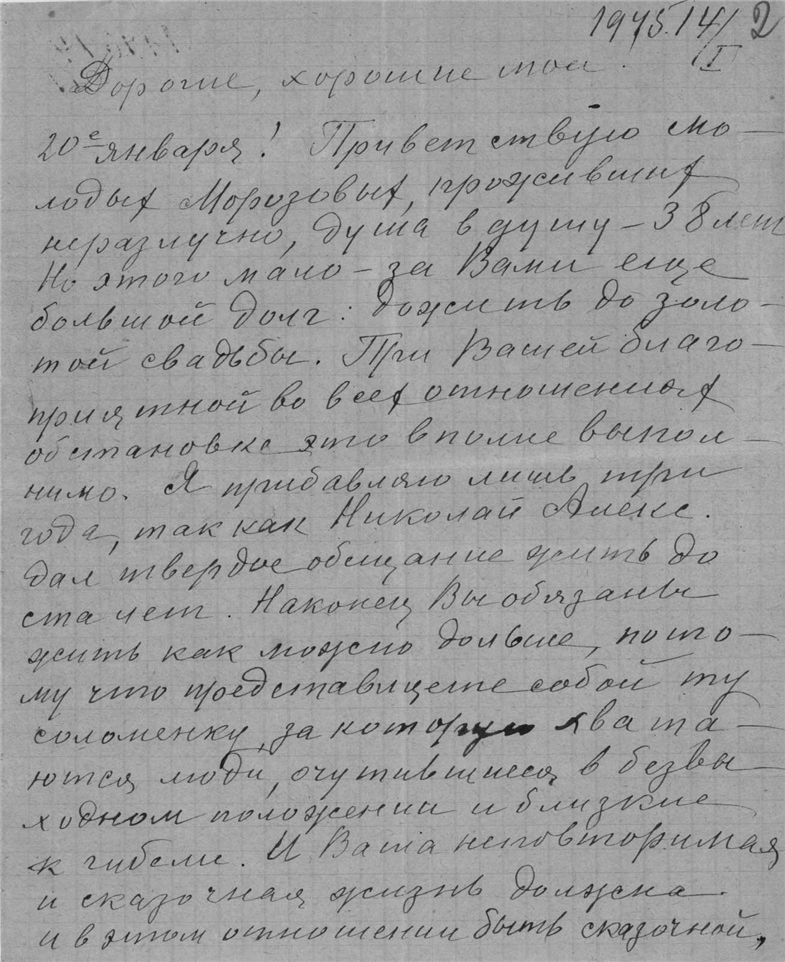 1945. 14/I 2
Дорогие, хорошие мои.
20е января! Приветствую мо-
лодых Морозовых, проживших
неразлучно, душа в душу – 38 лет
Но этого мало – за Вами еще
большой долг: дожить до золо-
той свадьбы. При Вашей благо-
приятной во всех отношениях
обстановке это вполне выпол-
нимо. Я прибавляю лишь три
года, так как Николай Алекс.
дал твердое обещание жить до
ста лет. Наконец Вы обязаны
жить как можно дольше, пото-
му что представляете собой ту
соломенку, за которую хвата-
ются люди, очутившиеся в безвы-
ходном положении и близкие
к гибели. И Ваша неповторимая
и сказочная жизнь должна
и в этом отношении быть сказочной,